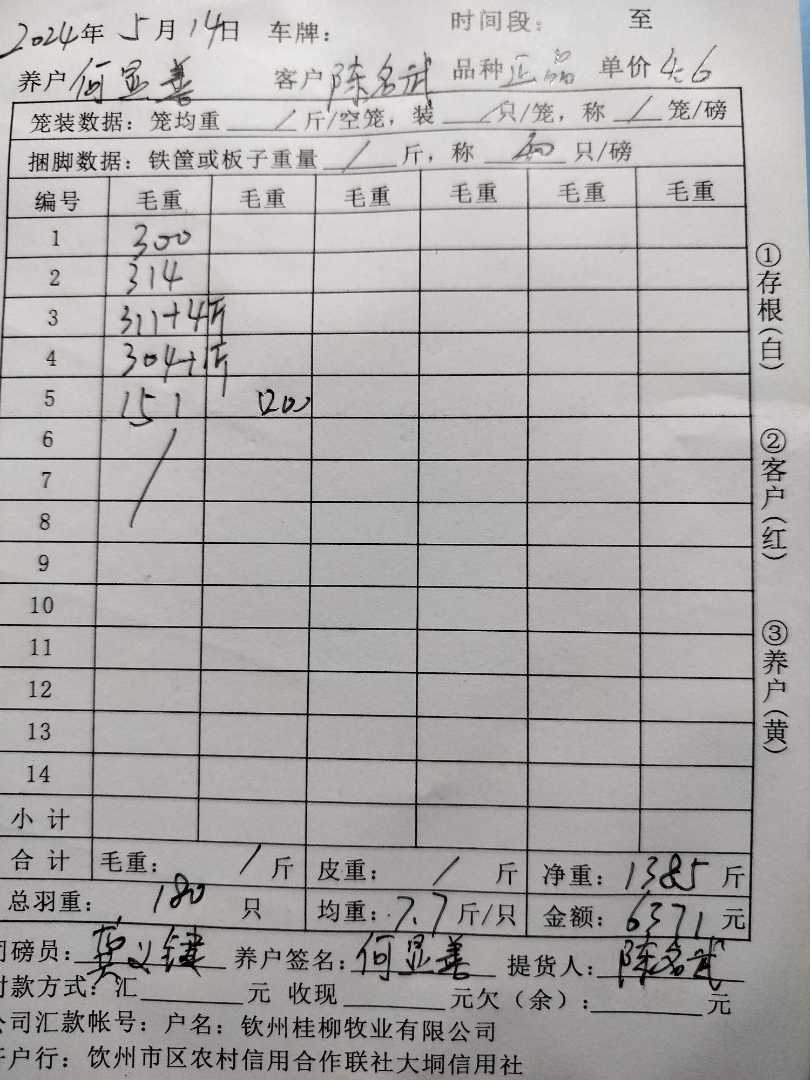 2024年 5月 14日 车牌： 时间段： 至
养户 何显善 客户 陈名武 品种 正品 单价 4.6
笼装数据：笼均重 / 斤/空笼，装 / 只/笼，称 / 笼/磅
捆脚数据：铁筐或板子重量 / 斤，称 只/磅
编号 毛重 毛重 毛重 毛重 毛重 毛重
1 300
2 314
3 311+4斤
4 304+1斤
5 151
6
7
8
9
10
11
12
13
14
小计
合计 毛重： / 斤 皮重： / 斤 净重：1385 斤
总羽重： 180 只 均重：7.7 斤/只 金额：6371 元
司磅员： 养户签名：何显善 提货人：陈名武
付款方式：汇 元 收现 元欠（余）： 元
公司汇款帐号：户名：钦州桂柳牧业有限公司
开户行：饮州市区农村信用合作联社大垌信用社
①存根（白）
②客户（红）
③养户（黄）